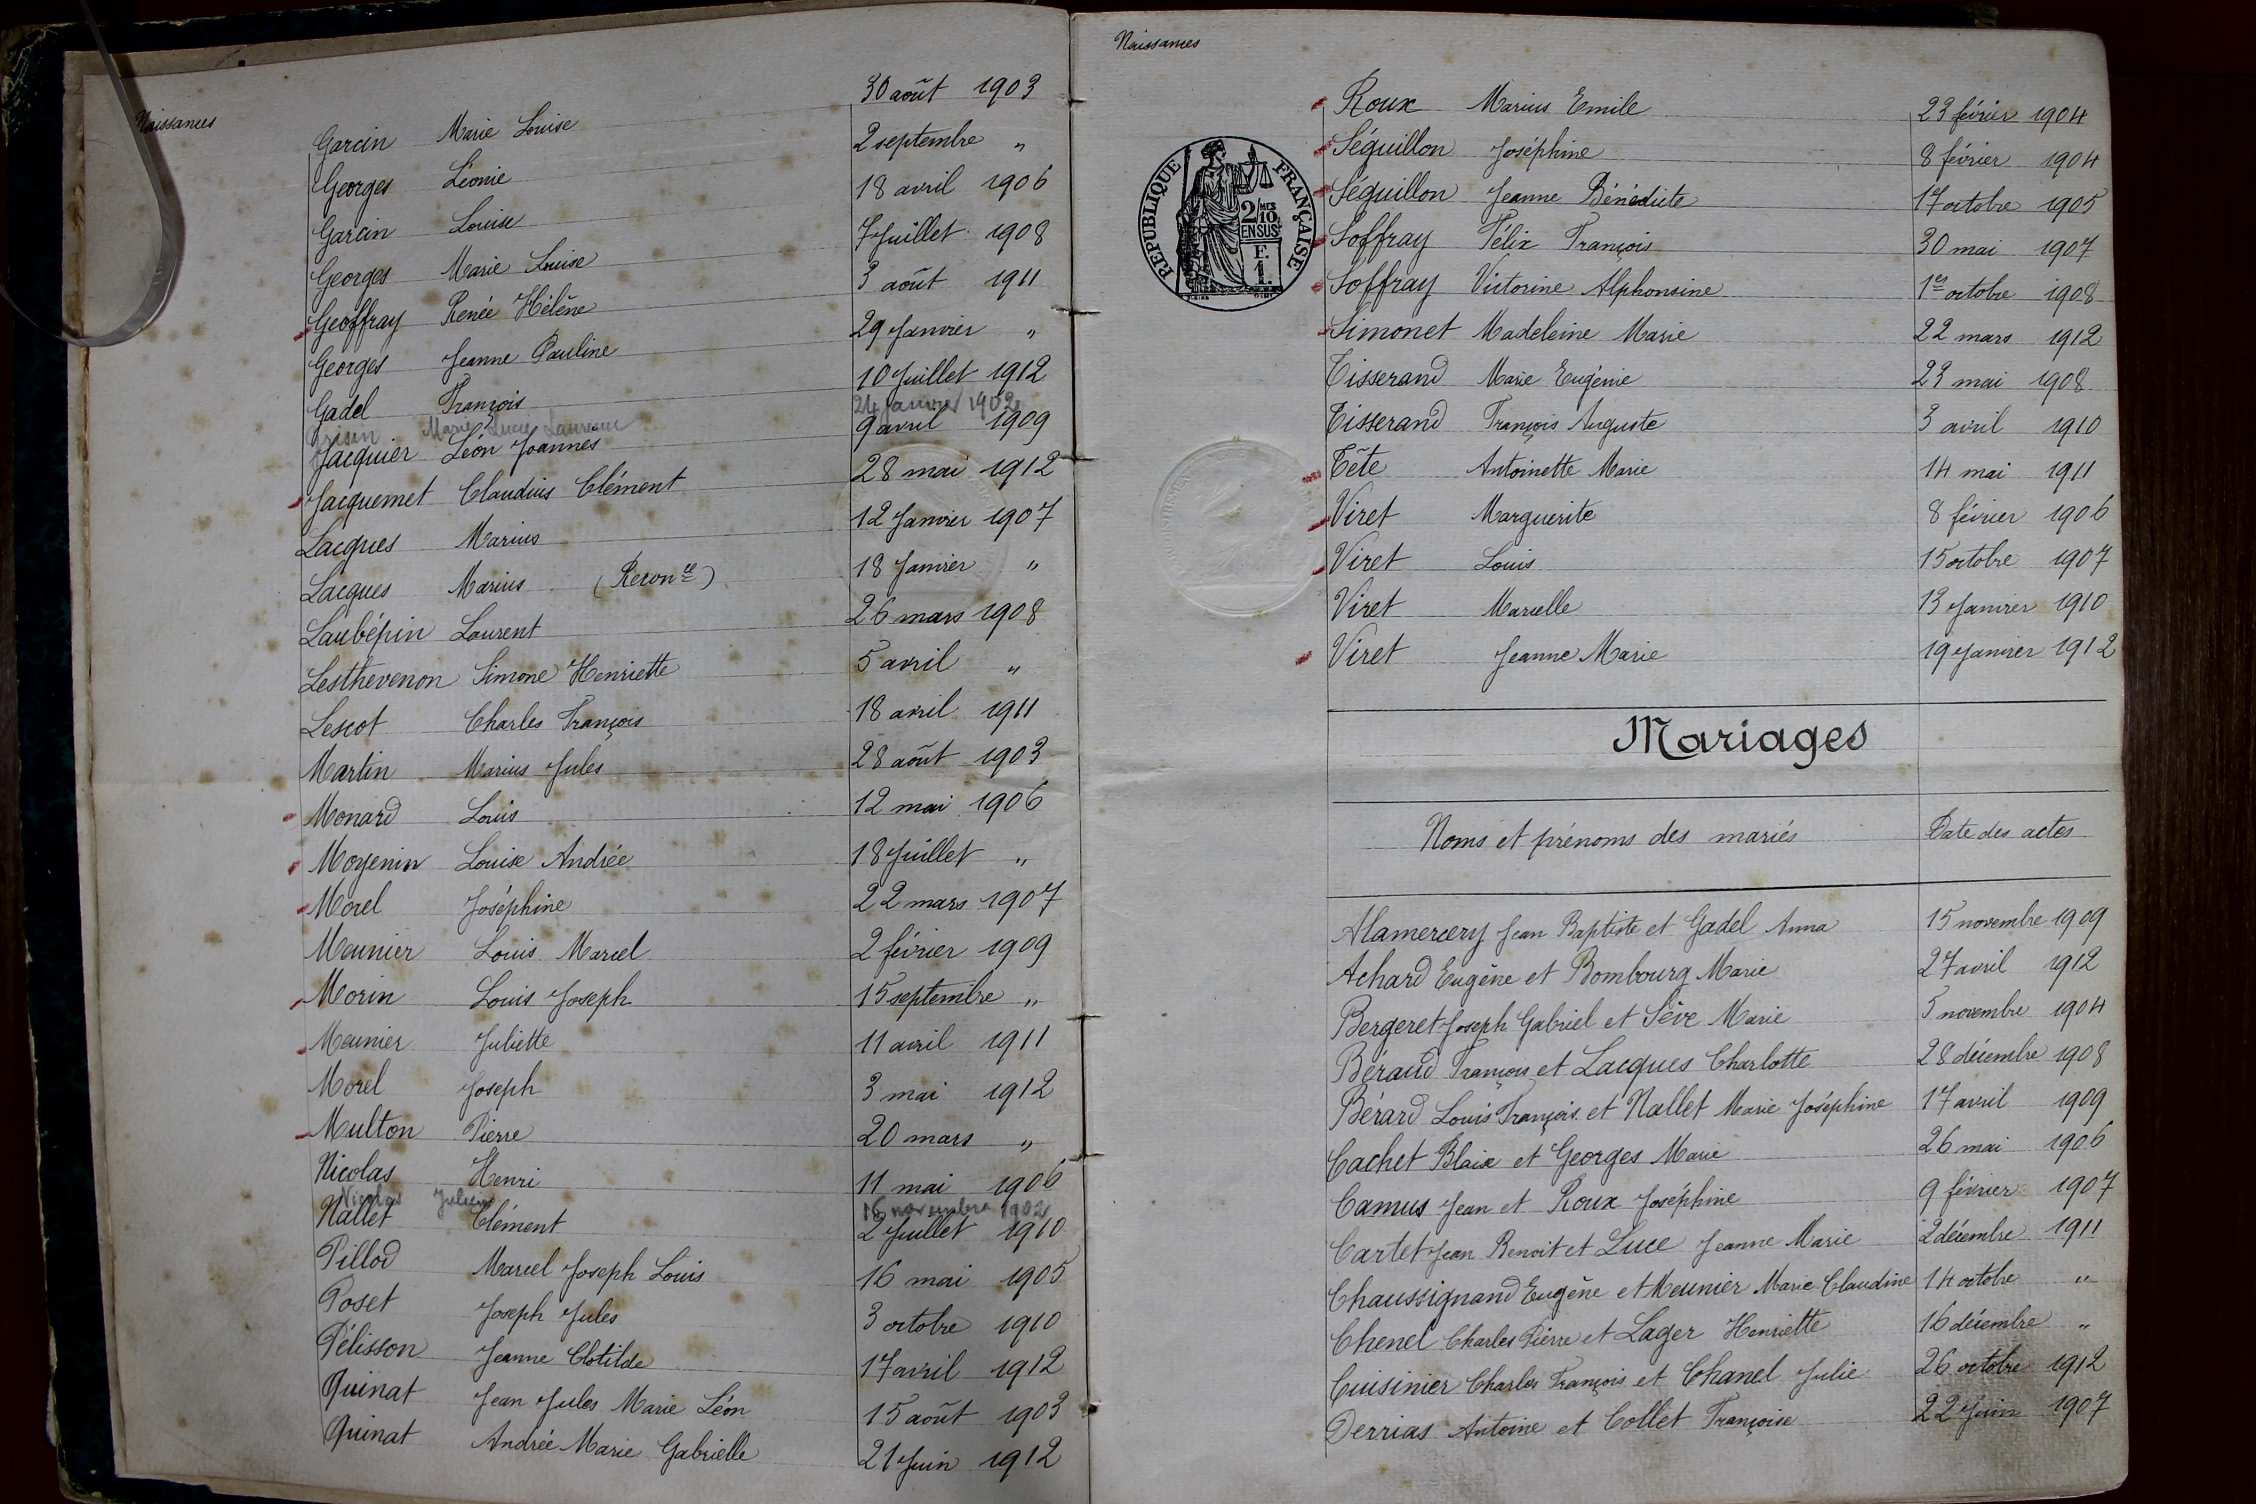 Naissances
Garcin Marie Louise 30 août 1903
Georges Léonie 2 septembre "
Garcin Louise 18 avril 1906
Georges Marie Louise 7 Juillet 1908
Geoffray Renée Hélène 3 août 1911
Georges Jeanne Pauline 29 Janvier "
Gadel François 10 Juillet 1912
Grisin Marie Lucie Laurence 24 Janvier 1902
Jacquier Léon Joannès 9 avril 1909
Jacquemet Claudius Clément 28 mai 1912
Lacques Marius 12 Janvier 1907
Lacques Marius (Reconce) 18 Janvier "
Laubépin Laurent 26 mars 1908
Lesthevenon Simone Henriette 5 avril "
Lescot Charles François 18 avril 1911
Martin Marius Jules 28 août 1903
Monard Louis 12 mai 1906
Moyenin Louise Andrée 18 Juillet "
Morel Joséphine 22 mars 1907
Meunier Louis Marcel 2 février 1909
Morin Louis Joseph 15 septembre "
Meunier Juliette 11 avril 1911
Morel Joseph 3 mai 1912
Multon Pierre 20 mars "
Nicolas Henri 11 mai 1906
Nicolas Julien 16 novembre 1902
Nallet Clément 2 Juillet 1910
Pillod Marcel Joseph Louis 16 mai 1905
Poset Joseph Jules 3 octobre 1910
Pélisson Jeanne Clotilde 17 avril 1912
Quinat Jean Jules Marie Léon 15 août 1903
Quinat Andrée Marie Gabrielle 21 Juin 1912
Naissances
REPUBLIQUE FRANÇAISE
2/10 MES
EN SUS
F.
1.
Roux Marius Emile 23 février 1904
Séguillon Joséphine 8 février 1904
Séguillon Jeanne Bénédicte 17 octobre 1905
Soffray Félix François 30 mai 1907
Soffray Victorine Alphonsine 1er octobre 1908
Simonet Madeleine Marie 22 mars 1912
Tisserand Marie Eugénie 23 mai 1908
Tisserand François Auguste 3 avril 1910
Tête Antoinette Marie 14 mai 1911
Viret Marguerite 8 février 1906
Viret Louis 15 octobre 1907
Viret Marcelle 13 Janvier 1910
Viret Jeanne Marie 19 Janvier 1912
Mariages
Noms et prénoms des mariés Date des actes
Alamercery Jean Baptiste et Gadel Anna 15 novembre 1909
Achard Eugène et Bombourg Marie 27 avril 1912
Bergeret Joseph Gabriel et Sève Marie 5 novembre 1904
Béraud François et Lacques Charlotte 28 décembre 1908
Bérard Louis François et Nallet Marie Joséphine 17 avril 1909
Cachet Blaise et Georges Marie 26 mai 1906
Camus Jean et Roux Joséphine 9 février 1907
Cartet Jean Benoit et Luce Jeanne Marie 2 décembre 1911
Chaussignand Eugène et Meunier Marie Claudine 14 octobre "
Chenel Charles Pierre et Lager Henriette 16 décembre "
Cuisinier Charles François et Chanel Julie 26 octobre 1912
Derrias Antoine et Collet Françoise 22 Juin 1907